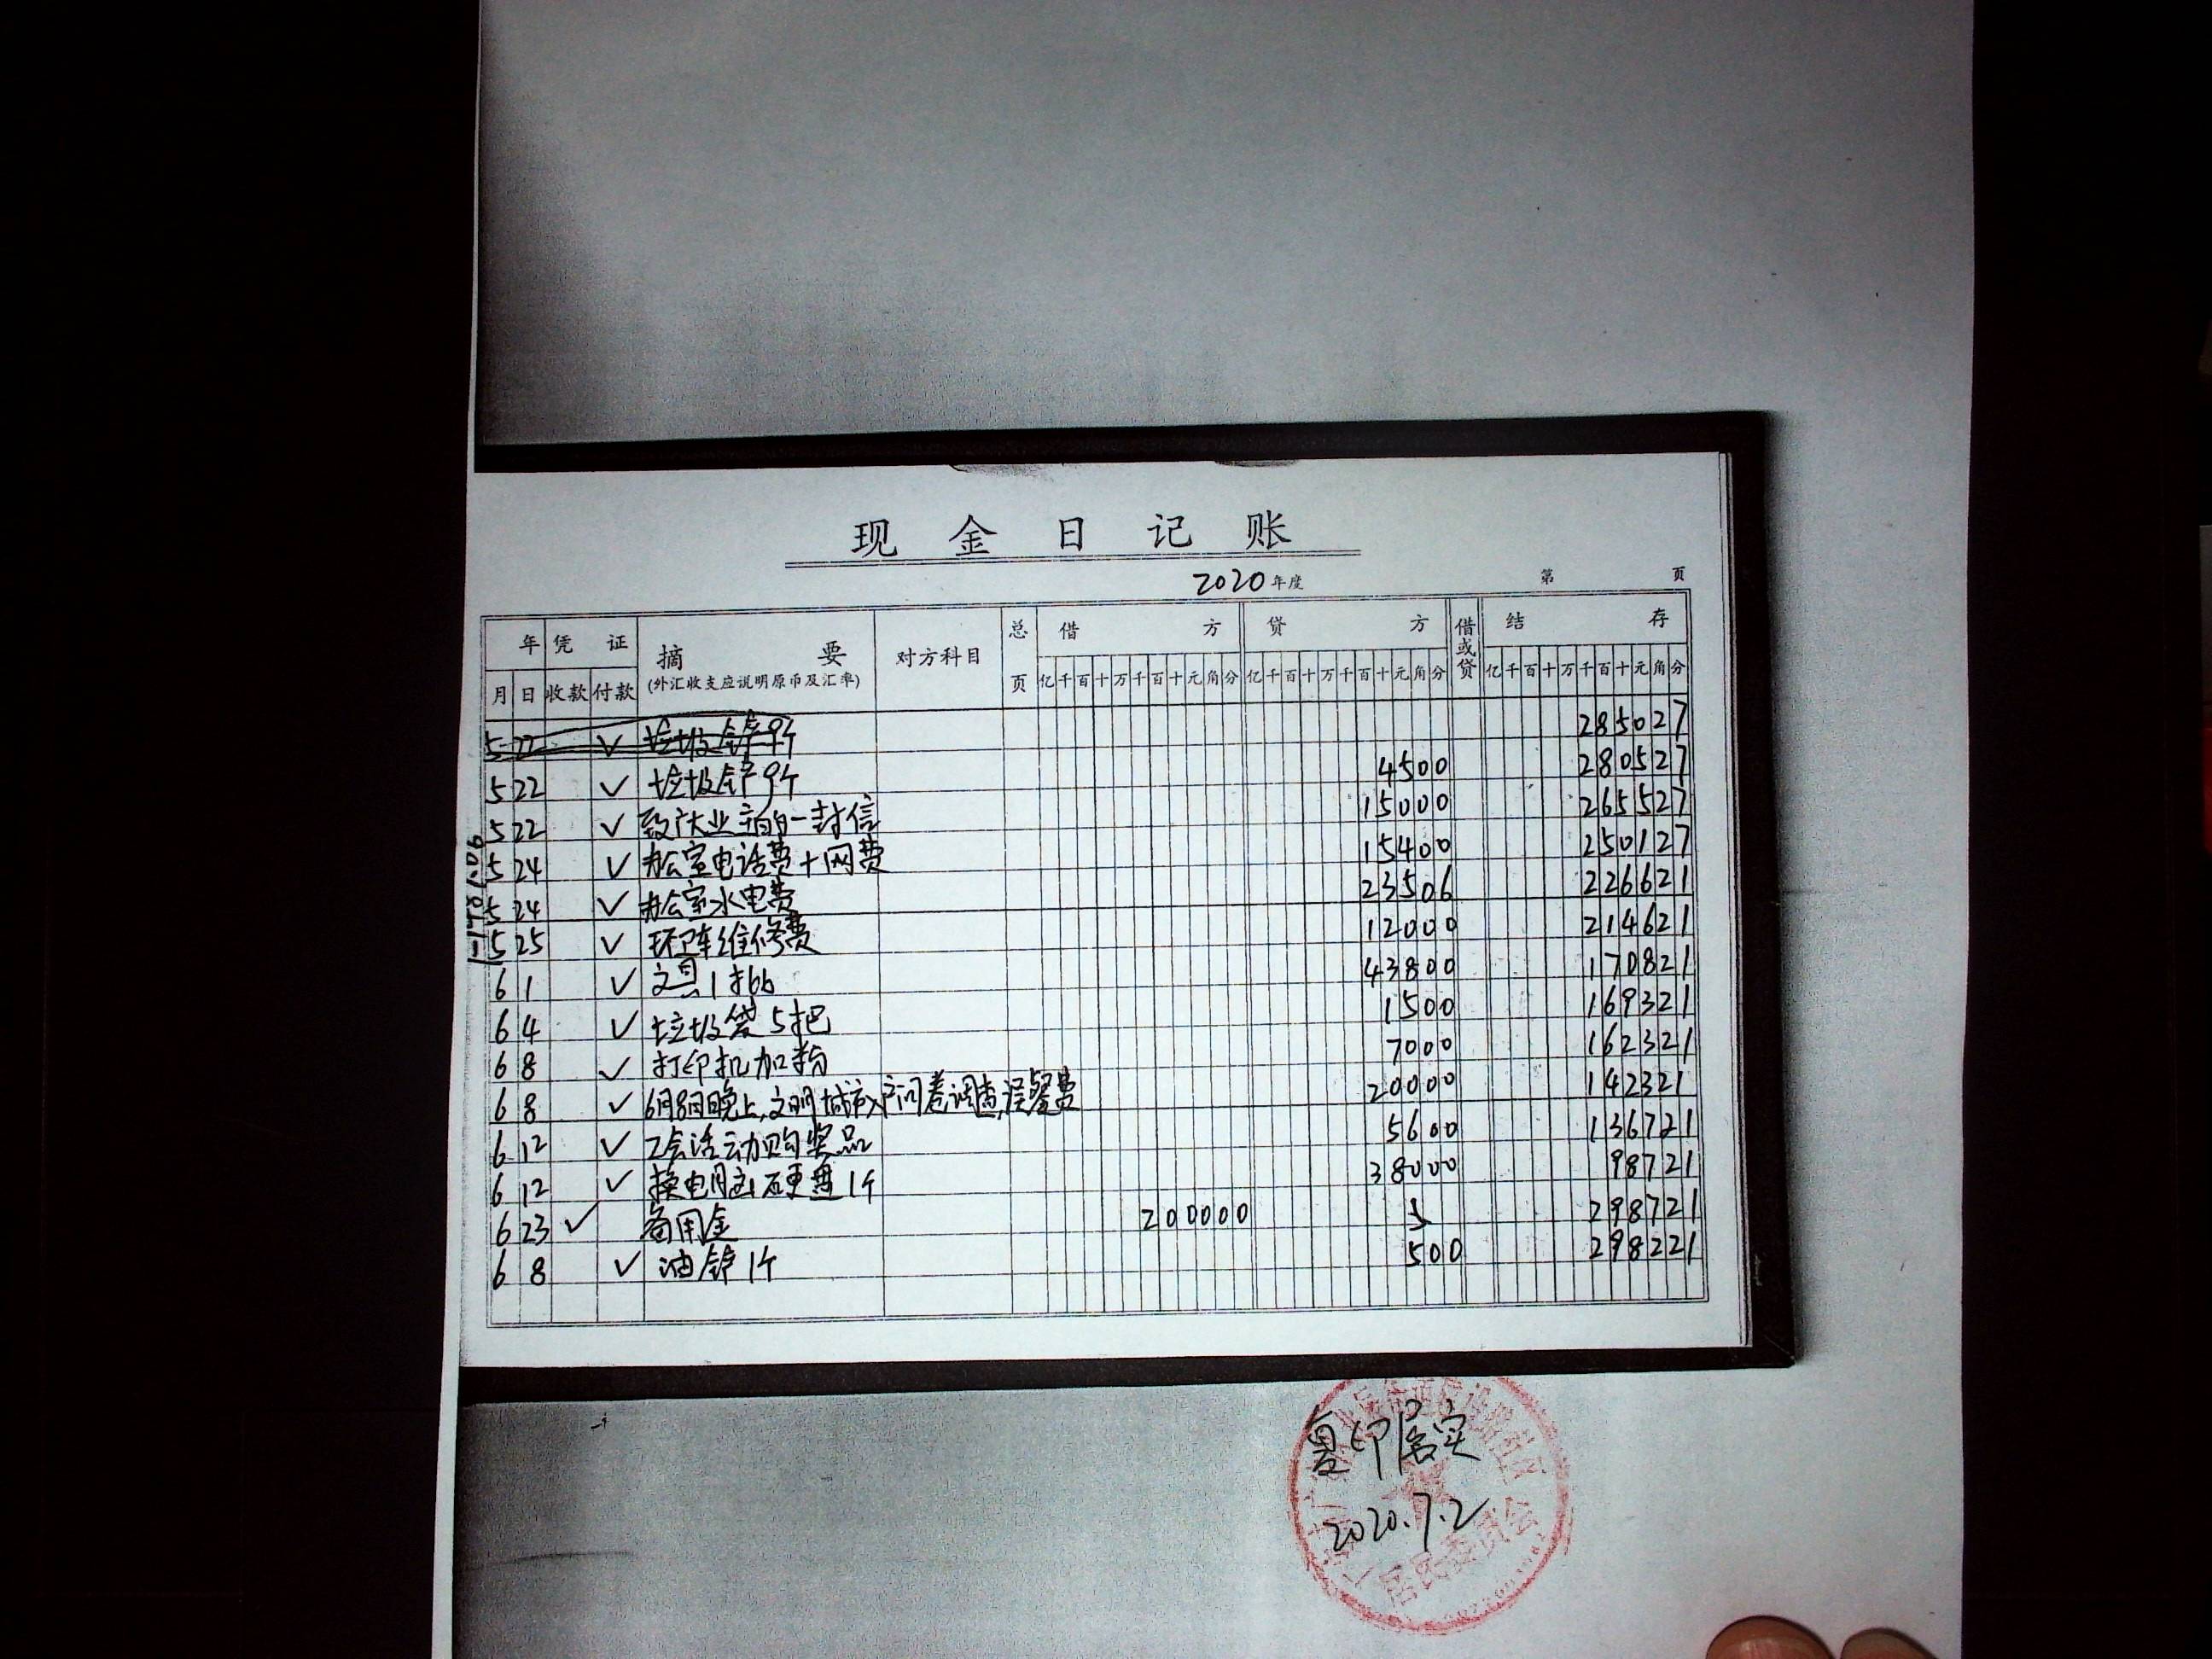 现金日记账
2020年度 第 页
年 凭证 摘要 对方科目 总页 借方 贷方 借或贷 结存
月 日 收款 付款 (外汇收支应说明原币及汇率) 亿千百十万千百十元角分 亿千百十万千百十元角分 亿千百十万千百十元角分
5 22 ✓ 垃圾铲9个 285027
5 22 ✓ 垃圾铲9个 4500 280527
5 22 ✓ 致广大业主的一封信 15000 265527
5 24 ✓ 办公室电话费+网费 15400 250127
5 24 ✓ 办公室水电费 23506 226621
5 25 ✓ 环卫车维修费 12000 214621
6 1 ✓ 文具1批 43800 170821
6 4 ✓ 垃圾袋5把 1500 169321
6 8 ✓ 打印机加粉 7000 162321
6 8 ✓ 6月8日晚上,文明城市入户问卷调查,误餐费 20000 142321
6 12 ✓ 工会活动购奖品 5600 136721
6 12 ✓ 换电脑硬盘1个 38000 98721
6 23 ✓ 备用金 200000 298721
6 8 ✓ 油铲1个 500 298221
复印属实
2020.7.2
居民委员会